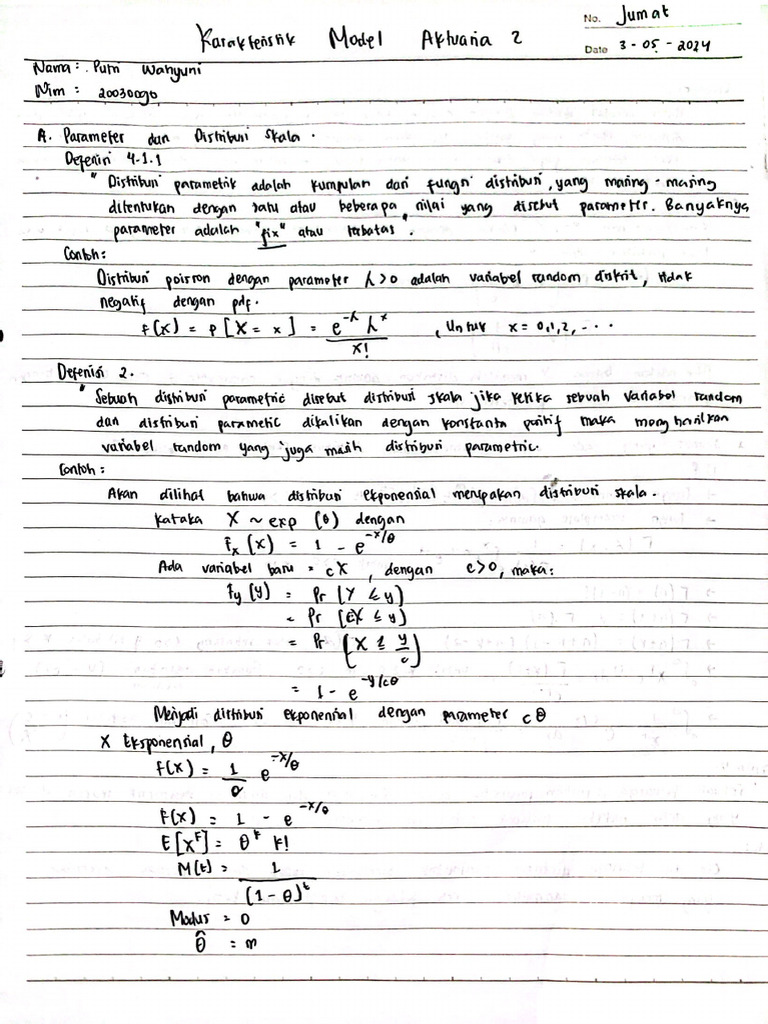 No. Jumat
Karakteristik Model Aktuaria 2
Date 3 - 05 - 2024
Nama : Putri Wahyuni
Nim :
A. Parameter dan Distribusi skala .
Defenisi 4.1.1
" Distribusi parametik adalah kumpulan dari fungsi distribusi, yang masing - masing
ditentukan dengan satu atau beberapa nilai yang disebut parameter. Banyaknya
parameter adalah "fix" atau terbatas " .
Contoh :
Distribusi poisson dengan parameter λ > 0 adalah variabel random diskrit, tidak
negatif dengan pdf .
f(x) = P [X = x] = e^-λ λ^x / x! , Untuk x = 0,1,2, . . .
Defenisi 2 .
" Sebuah distribusi parametric disebut distribusi skala jika ketika sebuah variabel random
dan distribusi parametic dikalikan dengan konstanta positif maka menghasilkan
variabel random yang juga masih distribusi parametric .
Contoh :
Akan dilihat bahwa distribusi eksponensial merupakan distribusi skala .
Kataka X ~ exp (θ) dengan
Fx (x) = 1 - e^-x/θ
Ada variabel baru = cX , dengan c>0, maka :
Fy (y) = Pr (Y ≤ y)
= Pr (cX ≤ y)
= Pr (X ≤ y/c)
= 1 - e^-y/cθ
Menjadi distribusi eksponensial dengan parameter cθ
X Eksponensial, θ
f(x) = 1/θ e^-x/θ
F(x) = 1 - e^-x/θ
E[x^k] = θ^k k!
M(t) = 1 / (1 - θ)^t
Modus = 0
θ̂ = m